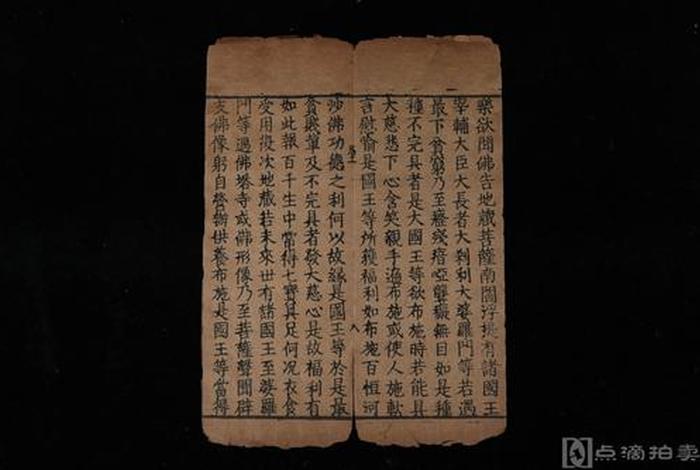 樂欲聞佛告地藏菩薩南閻浮提有諸國王
宰輔大臣大長者大剎利大婆羅門等若遇
最下貧窮乃至癃殘瘖啞聾癡無目如是種
種不完具者是大國王等欲布施時若能具
大慈悲下心含笑親手遍布施或使人施軟
言慰喻是國王等所獲福利如布施百恒河
沙佛功德之利何以故緣是國王等於是最
貧賤輩及不完具者發大慈心是故福利有
如此報百千生中常得七寶具足何況衣食
受用復次地藏若未來世有諸國王至婆羅
門等遇佛塔寺或佛形像乃至菩薩聲聞辟
支佛像躬自營辦供養布施是國王等當得
点滴拍卖